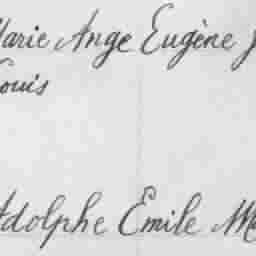 Marie Ange Eugène
Louis
Adolphe Emile